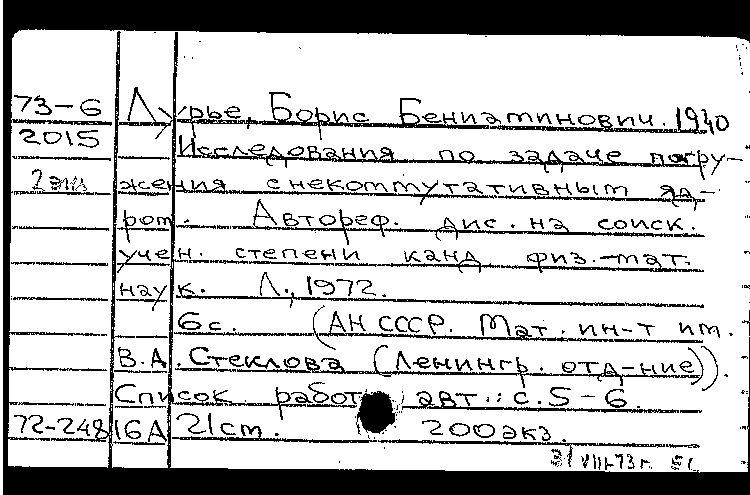 73-6 Лурье, Борис Бениаминович. 1940
2015 Исследования по задаче погру-
2 экз жения с некоммутативным яд-
ром. Автореф. дис. на соиск.
учен. степени канд физ.-мат.
наук. Л., 1972.
6 с. (АН СССР. Мат. ин-т им.
В.А. Стеклова (Ленингр. отд-ние)).
Список работ авт.: с. 5-6.
72-248 16А 21 ст. 200 экз.
31 VIII-73 г.